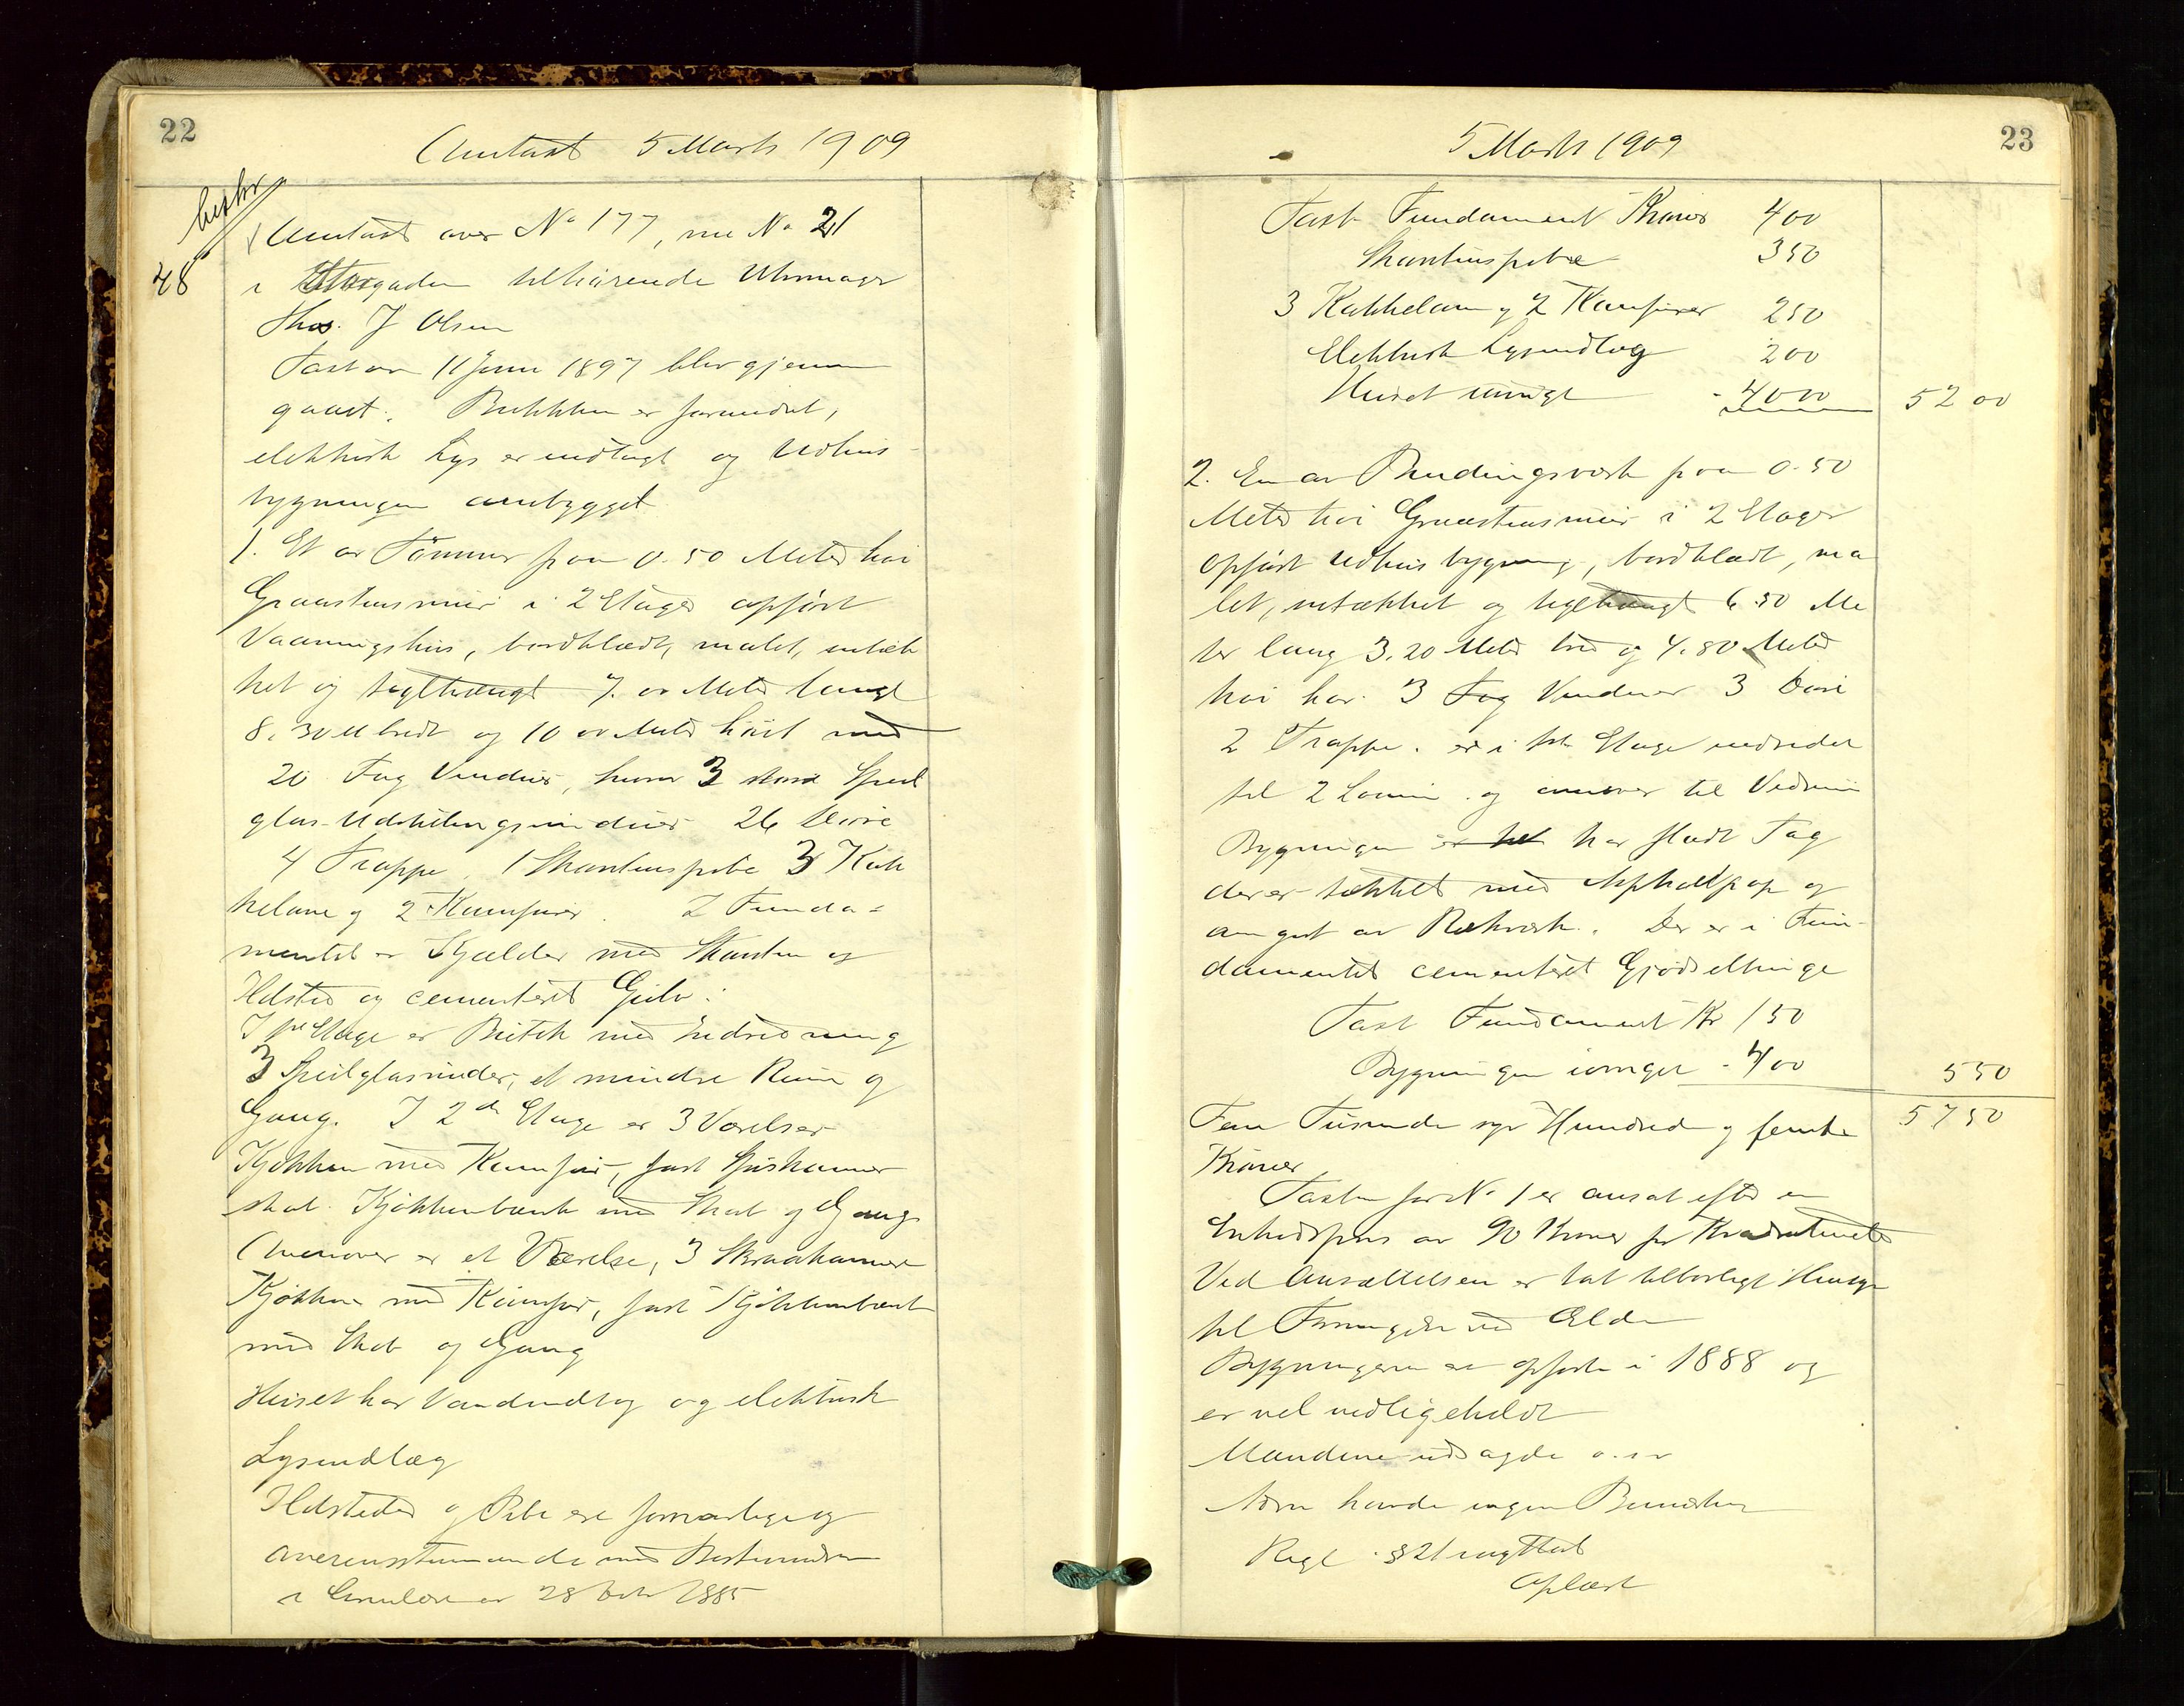 22
Omtaxt 5 Marts 1909
beskr
48
Omtaxt over No 177, nu No 21
i Storgaden tilhørende Uhrmager
Thos. J Olsen
Taxt av 11 Juni 1897 blev gjennem
gaaet. Butikken er forandret,
elektrisk Lys er indlagt og Udhus-
bygningen ombygget
1. Et av Tømmer paa 0.50 Meter høi
Graastensmur i 2 Etager opført
Vaaningshus, bordklædt, malet, entæk
ket og teglhængt 7.00 Meter langt
8.30 M bredt og 10.00 Meter høit med
20 Fag Vinduer, hvorav 3 store Speil
glas-Udstillingsvinduer 26 Døre
4 Trappe, 1 Skorstenspibe 3 Kak
kelovne og 2 Komfurer. I Funda-
mentet er Kjælder med Skorsten og
Ildsted og cementeret Gulv.
I 1ste Etage er Butik med Indredning
3 Speilglasvinduer, et mindre Rum og
Gang. I 2den Etage er 3 Værelser
Kjøkken med Komfur, fast Spiskammer
skab. Kjøkkenbænk med Skab og Gang
Ovenover er et Værelse, 3 Skraakammere
Kjøkken med Komfur, fast Kjøkkenbænk
med Skab og Gang
Huset har Vandindlæg og elektrisk
Lysindlæg
Ildsteder og Pibe ere forsvarlige og
overensstemmende med Bestemmelsen
i Circulære av 28 Oct 1885
23
5 Marts 1909
Taxt Fundament Kroner 400
Skorstenspibe 350
3 Kakkelovne og 2 Komfurer 250
Elektrisk Lysindlæg 200
Huset iøvrigt - 4000 5200
2. En av Bindingsværk paa 0.50
Meter høi Graastensmur i 2 Etager
opført Udhusbygning, bordklædt, ma
let, entækket og teglhængt 6.50 Me
ter lang 3.20 Meter bred og 4.80 Meter
høi har 3 Fag Vinduer 3 Døre
2 Trappe. er i 1ste Etage indredet
til 2 og ovenover til
Bygningen er het har fladt Tag
der er tækket med Asphaltpap og
omgivet av Rækværk. Der er i Fun-
damentet cementeret Gjødselbinge
Taxt Fundament Kr 150
Bygningen iøvrigt - 400 550
Fem Tusinde syv Hundred og femti 5750
Kroner
Taxten for No 1 er ansat efter en
Enhedspris av 90 Kroner pr Kvadratmeter
Ved Ansættelsen er tat tilbørligt Hensyn
til Forringelse ved Ælde
Bygningerne ere opførte i 1888 og
er vel vedligeholdt
Mændene udsagde o.s.v
havde ingen
Regl § 21 iagttat
Oplæst